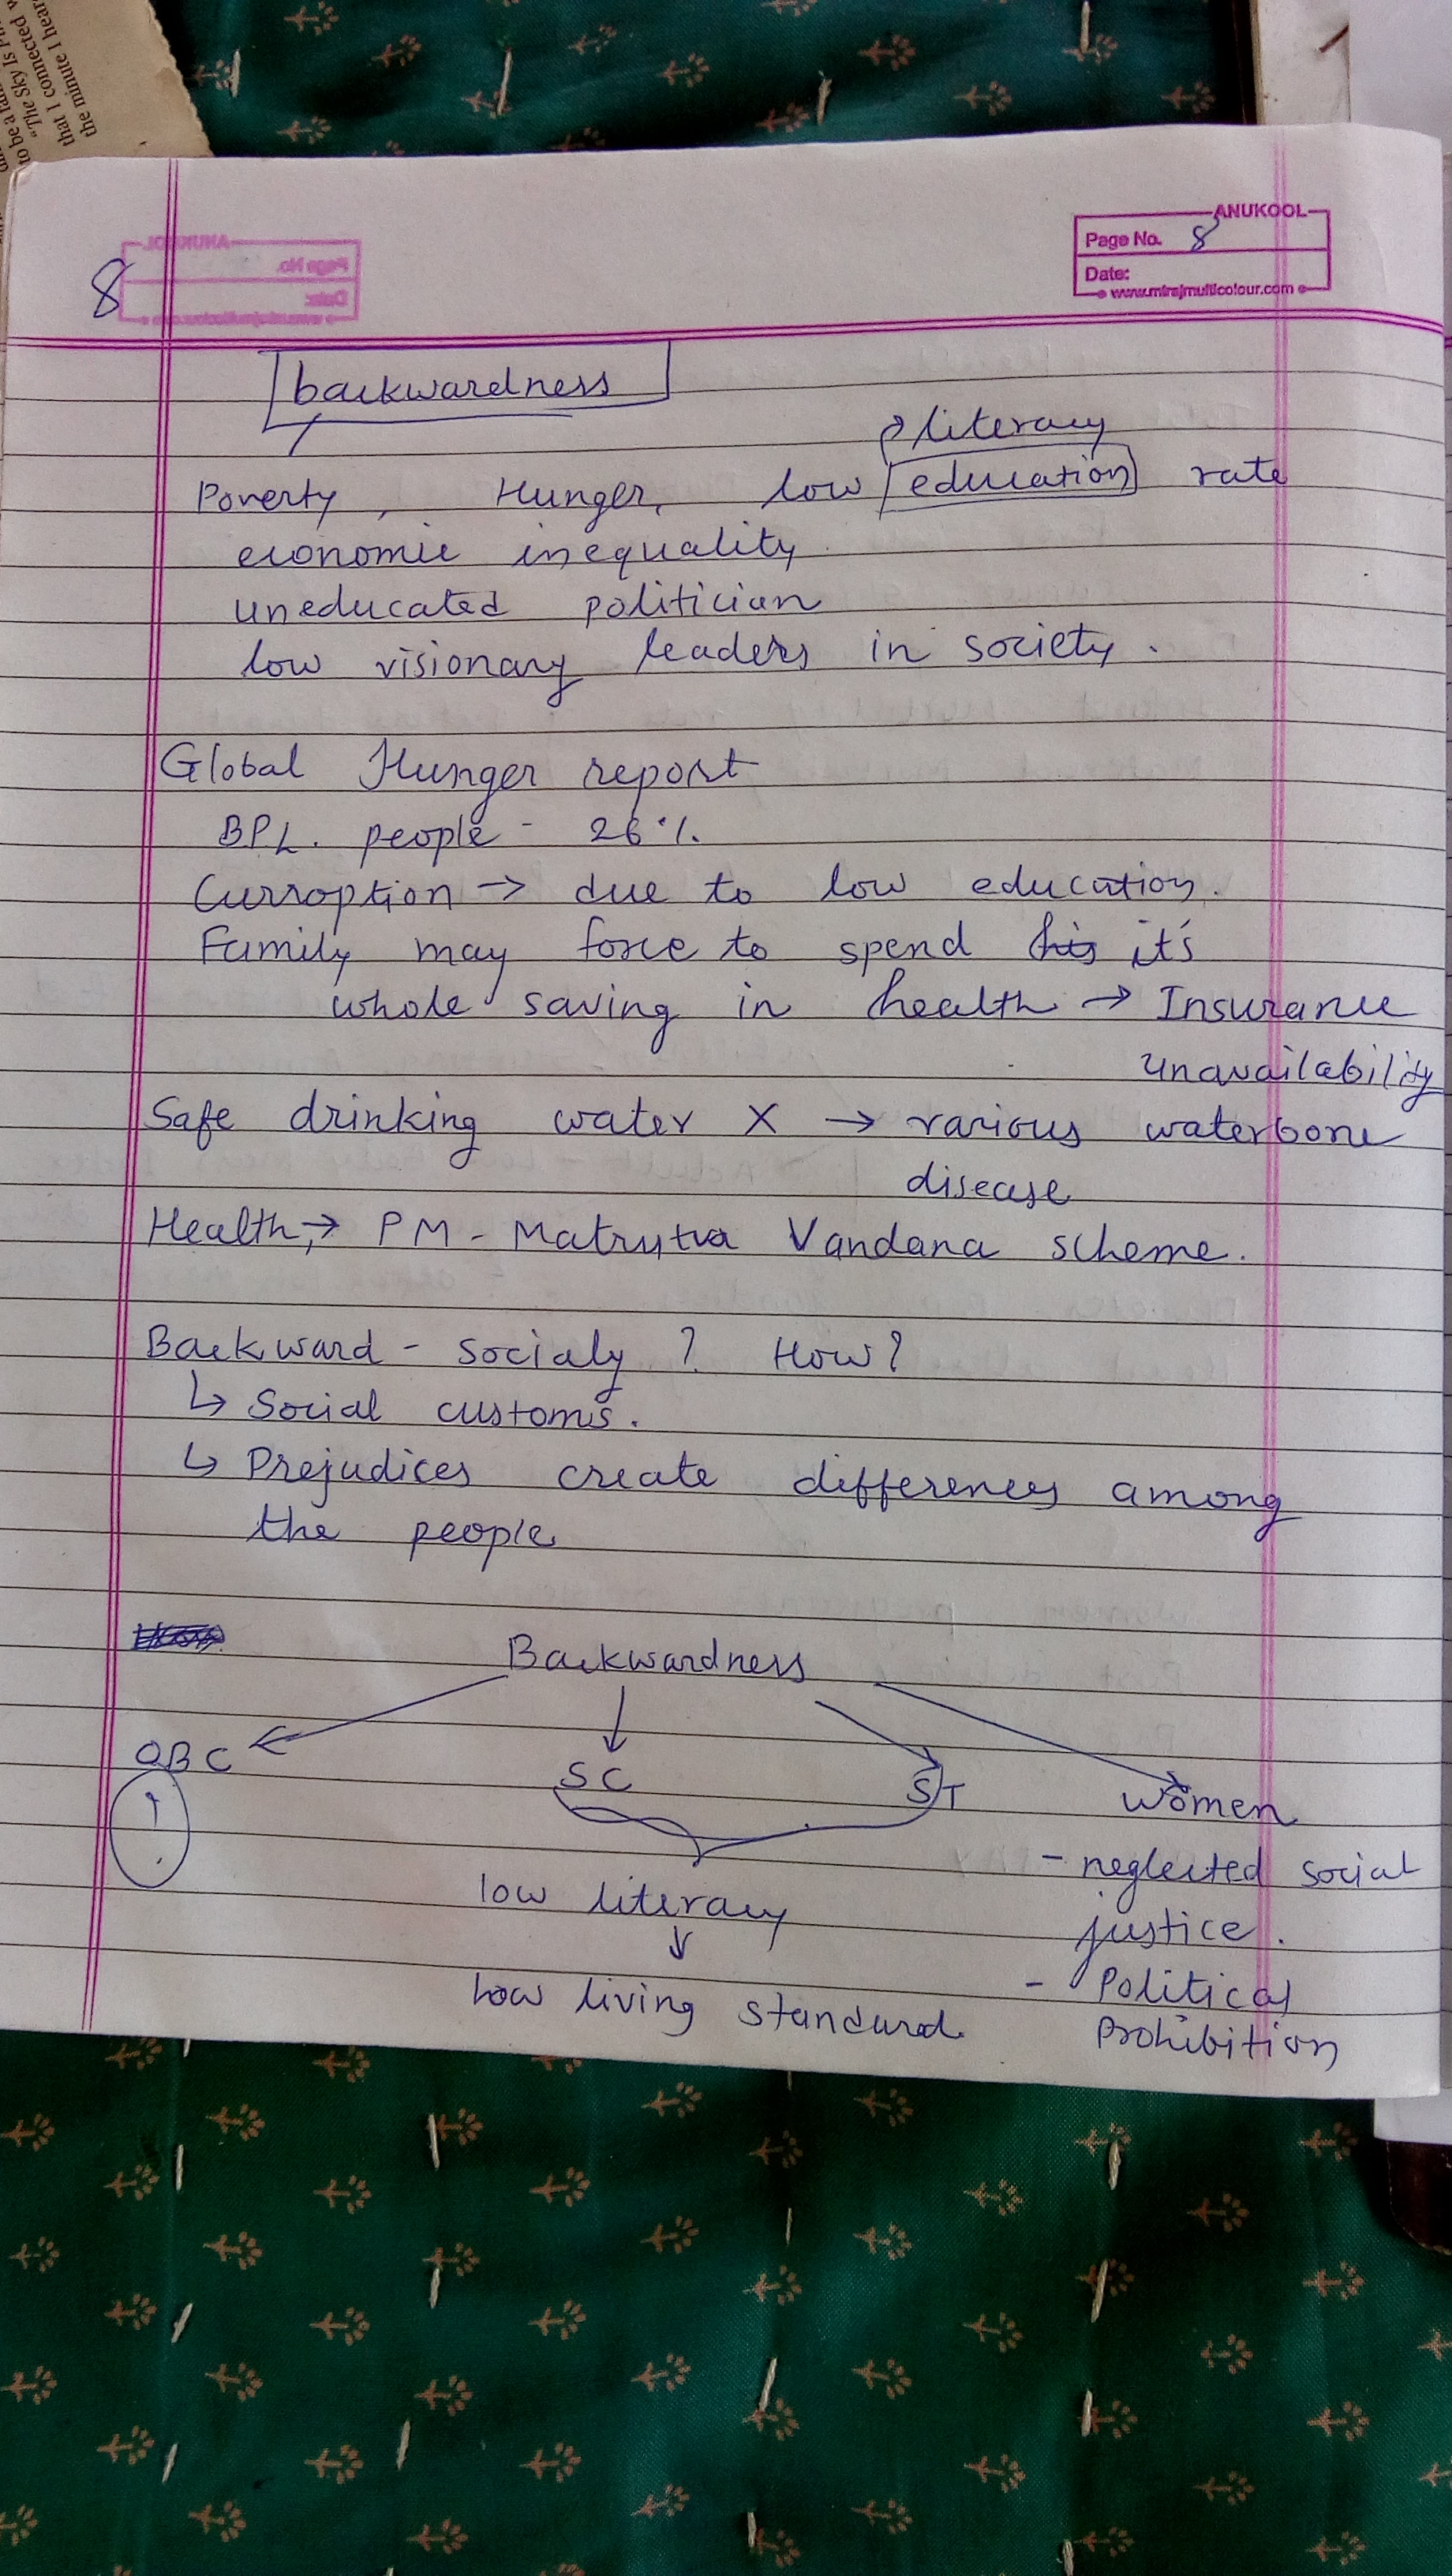 to be a fan
"The Sky Is Pin
that I connected w
the minute I hear
ANUKOOL
Page No. 8
Date:
www.mirajmulticolour.com
8
backwardness
literacy
Poverty, Hunger, low education rate
economic inequality
uneducated politician
low visionary leaders in society.
Global Hunger report
BPL. people - 26%.
Curroption → due to low education.
Family may force to spend his it's
whole saving in health → Insurance
unavailability
Safe drinking water X → various waterbone
disease
Health → PM - Matrutva Vandana scheme.
Backward - socialy ? How?
↳ Social customs.
↳ Prejudices create differences among
the people
Backwardness
OBC SC ST Women
- neglected social
justice.
low literacy
↓
low living standard
- Political
Prohibition